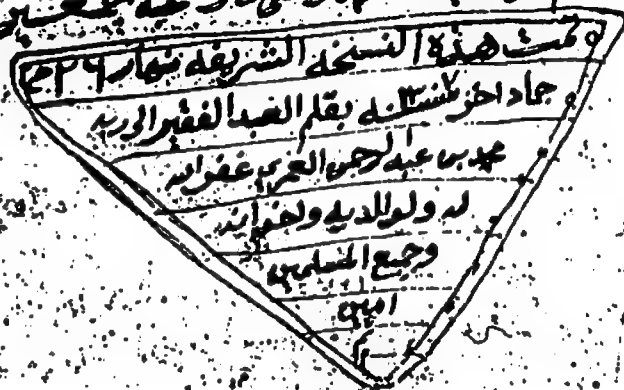 تمت هذه النسخه الشريفه نهار ٢٩
جماد اخر سنه بقلم العبد الفقير الى ربه
محمد بن عبد الرحمن العمري غفر الله
له ولوالديه ولخوانه
وجميع المسلمين
امين